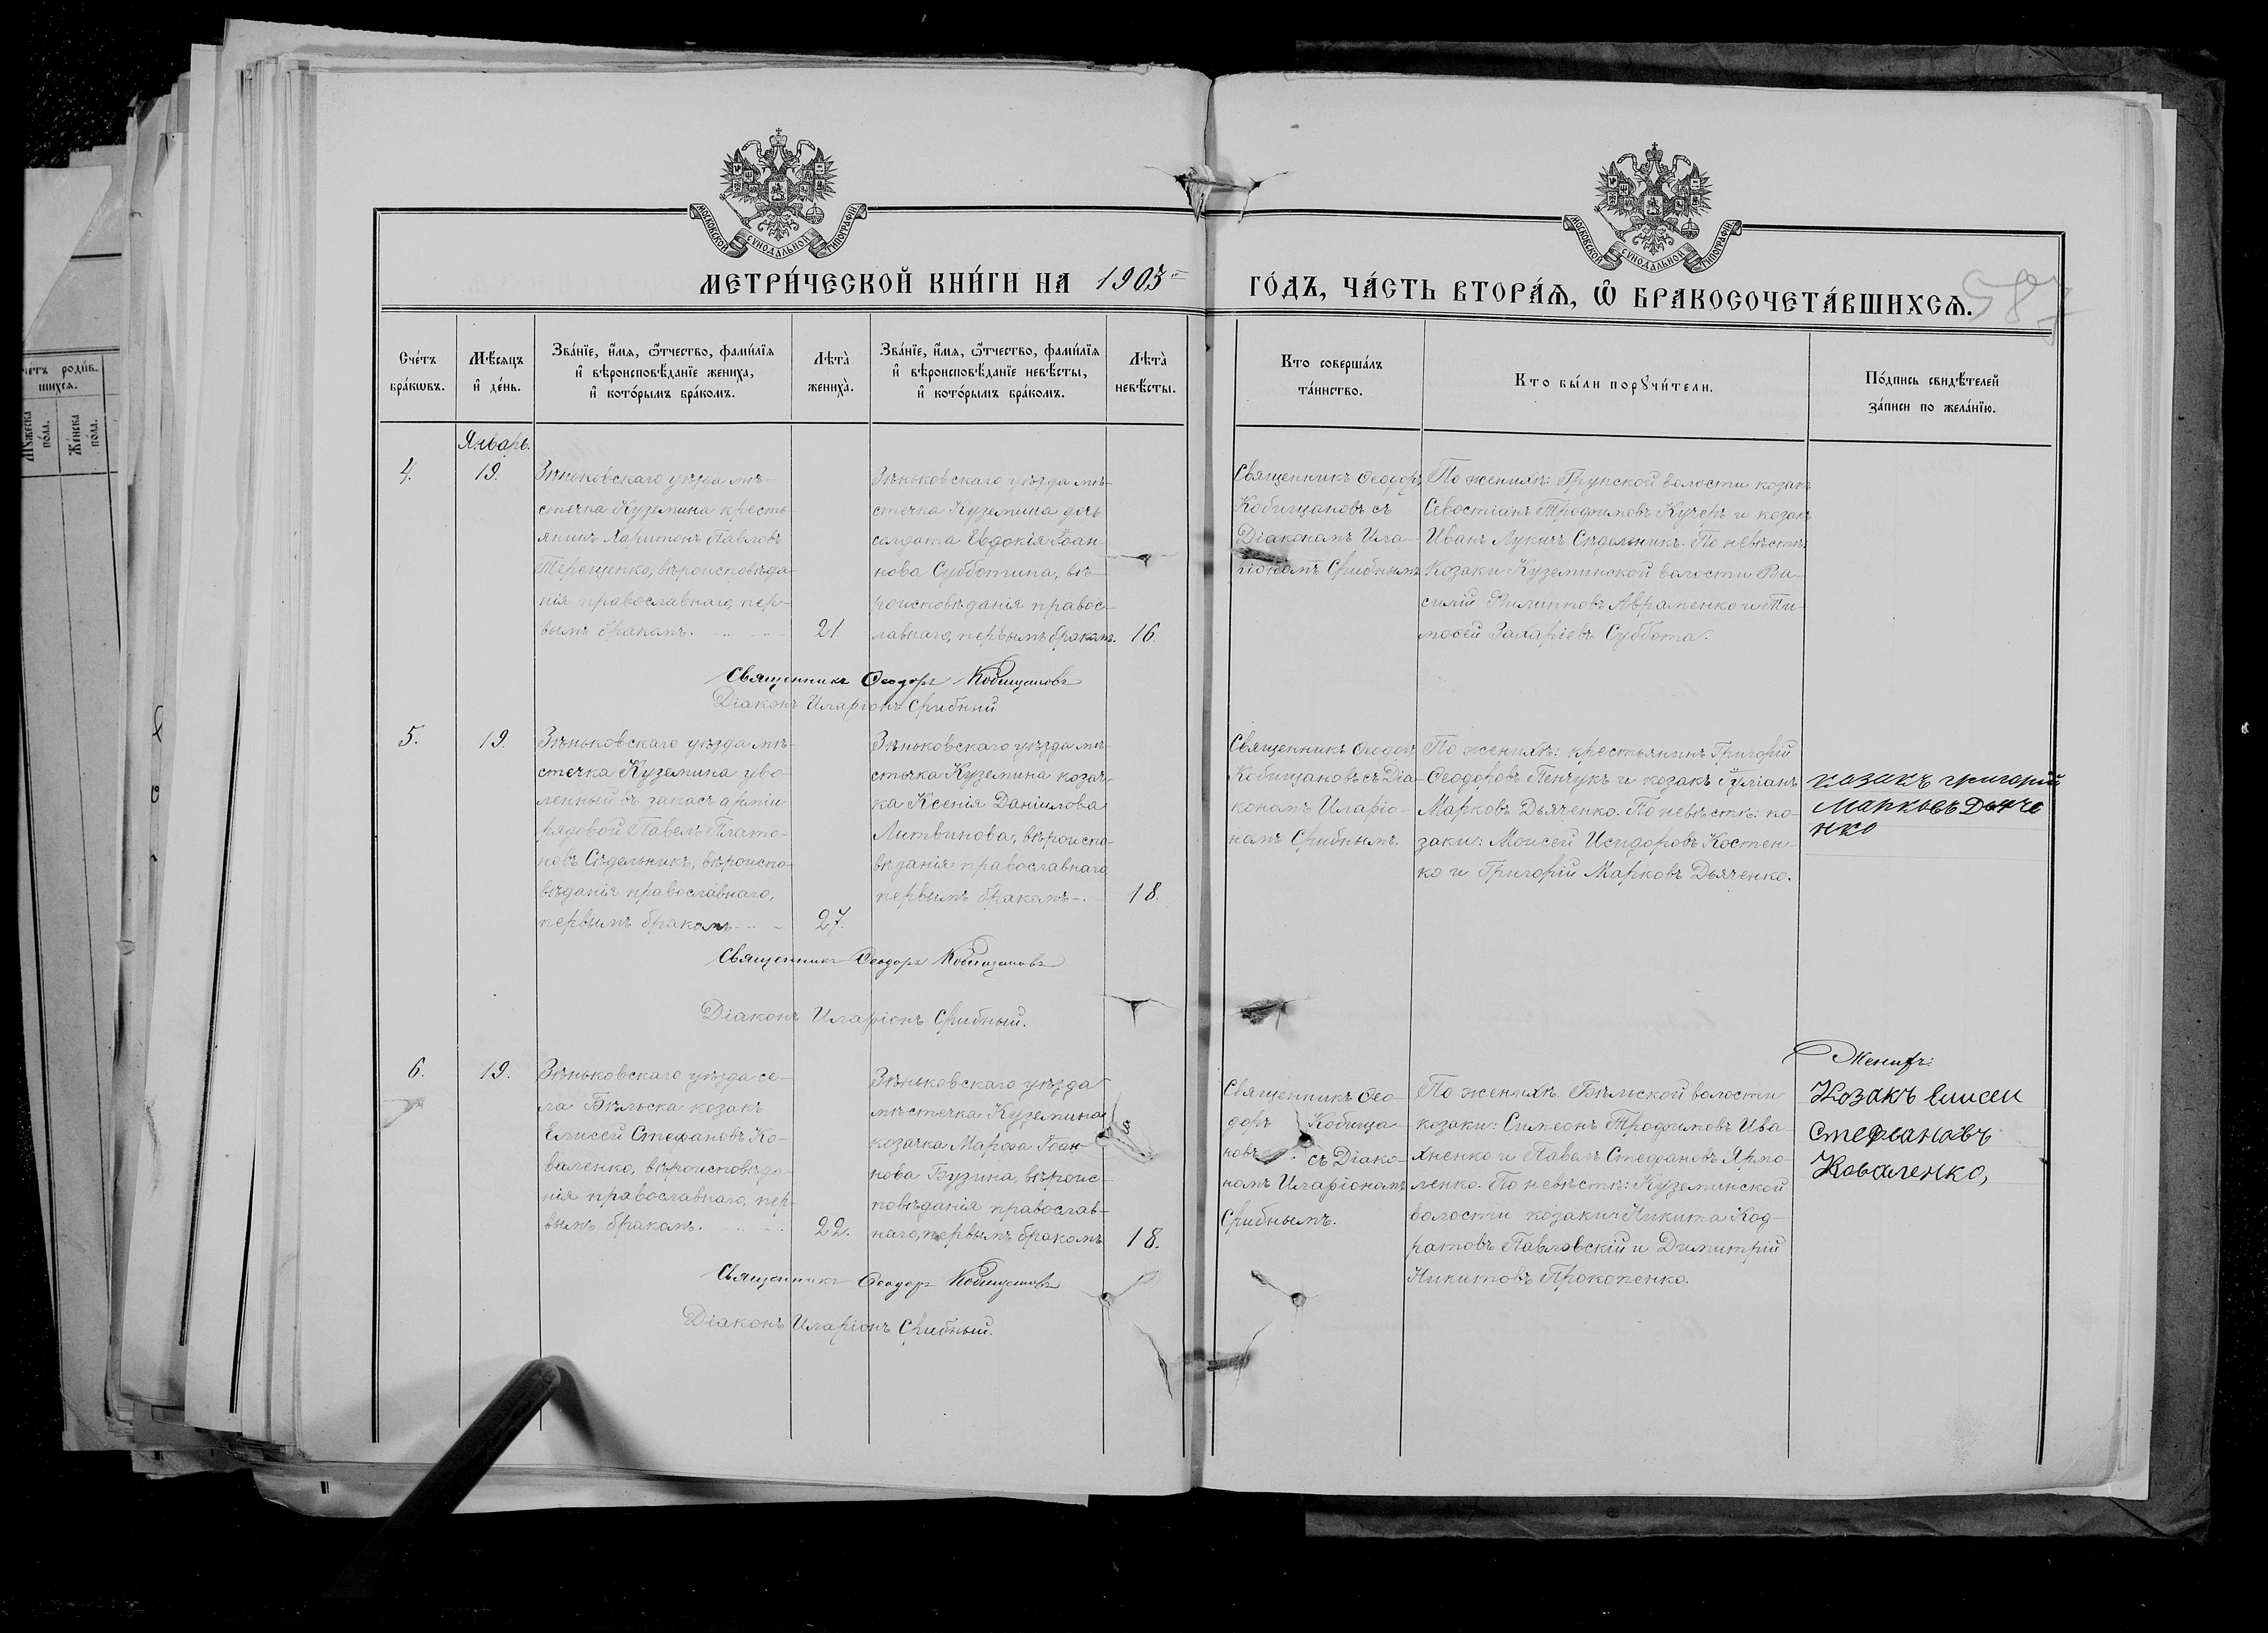 МОСКОВСКОЙ СѴНОДАЛЬНОЙ ТИПОГРАФІИ
МОСКОВСКОЙ СѴНОДАЛЬНОЙ ТИПОГРАФІИ
МЕТРИ́ЧЕСКОЙ КНИ́ГИ НА 1903 ГО́ДЪ, ЧА́СТЬ ВТОРА́Ѧ, Ѿ БРАКОСОЧЕТА́ВШИХСѦ.
Сче́тъ
бра́кѡвъ.
Мѣ́сѧцъ
и҆ де́нь.
Зва́нїе, и҆́мѧ, ѻ҆́тчество, фами́лїѧ
и҆ вѣроисповѣ́данїе жениха̀,
и҆ кото́рымъ бра́комъ.
Лѣта̀
жениха̀.
Зва́нїе, и҆́мѧ, ѻ҆́тчество, фами́лїѧ
и҆ вѣроисповѣ́данїе невѣ́сты,
и҆ кото́рымъ бра́комъ.
Лѣта̀
невѣ́сты.
Кто соверша́лъ
та́инство.
Кто бы́ли порꙋчи́тели.
По́дпись свидѣ́телей
за́писи по жела́нїю.
Январь.
4.
19.
Зѣньковскаго уѣзда мѣ-
стечка Куземина кресть-
янинъ Харитонъ Павловъ
Терещенко, вѣроисповѣда-
нія православнаго, пер-
вымъ бракомъ.
21.
Зѣньковскаго уѣзда мѣ-
стечка Куземина дочь
солдата Евдокія Іоан-
нова Субботина, вѣ-
роисповѣданія правос-
лавнаго, первымъ бракомъ.
16.
Священникъ Ѳеодоръ
Кобищановъ съ
Діакономъ Ила-
ріономъ Срибнымъ
По женихѣ: Грунской волости козакъ
Севостіанъ Трофимовъ Кучеръ и козакъ
Иванъ Лукичъ Сѣдельникъ. По невѣстѣ:
козаки Куземинской волости Ва-
силій Филипповъ Авраменко и Ти-
моѳей Захаріевъ Суббота.
Священникъ Ѳеодоръ Кобищановъ
Діаконъ Иларіонъ Срибный.
5.
19.
Зѣньковскаго уѣзда мѣ-
стечка Куземина уво-
ленный въ запасъ арміи
рядовой Павелъ Плато-
новъ Сѣдельникъ, вѣроиспо-
вѣданія православнаго,
первымъ бракомъ
27.
Зѣньковскаго уѣзда мѣ-
стечка Куземина козач-
ка Ксенія Даніилова
Литвинова, вѣроиспо-
вѣданія православнаго
первымъ бракомъ.
18.
Священникъ Ѳеодоръ
Кобищановъ съ Діа-
кономъ Иларіо-
номъ Срибнымъ.
По женихѣ: крестьянинъ Григорій
Ѳеодоровъ Пенчукъ и козакъ Іуліанъ
Марковъ Дьяченко. По невѣстѣ: ко-
заки: Моисей Исидоровъ Костен-
ко и Григорій Марковъ Дьяченко.
козакъ григорій
Марковъ Дьяче
нко
Священникъ Ѳеодоръ Кобищановъ
Діаконъ Иларіонъ Срибный.
6.
19.
Зѣньковскаго уѣзда се-
ла Бѣльска козакъ
Елисей Стефановъ Ко-
валенко, вѣроисповѣда-
нія православнаго, пер-
вымъ бракомъ.
22.
Зѣньковскаго уѣзда
мѣстечка Куземина
козачка Марѳа Іоан-
нова Бузина, вѣроис-
повѣданія православ-
наго, первымъ бракомъ
18.
Священникъ Ѳео-
доръ Кобища-
новъ съ Діако-
номъ Иларіономъ
Срибнымъ.
По женихѣ. Бѣльской волости
козаки: Симеонъ Трофимовъ Ива-
хненко и Павелъ Стефановъ Ярмо-
ленко. По невѣстѣ: Куземинской
волости козаки Никита Код-
ратовъ Павловскій и Димитрій
Никитовъ Прокопенко.
Женихъ:
Козакъ Елисеи
Стефановъ
Коваленко,
Священникъ Ѳеодоръ Кобищановъ
Діаконъ Иларіонъ Срибный.